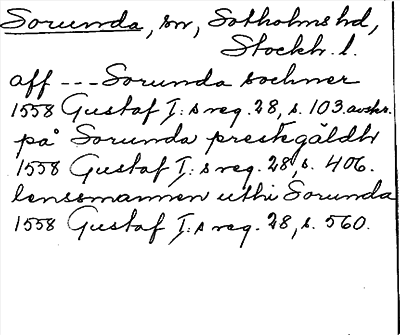 Sorunda, sn, Sotholms hd,
Stockh. l.
aff --- Sorunda sochner
1558 Gustaf I:s reg. 28, s. 103. avskr.
på Sorunda prestegåldh
1558 Gustaf I:s reg. 28, s. 406.
lenssmannen uthi Sorunda
1558 Gustaf I:s reg. 28, s. 560.